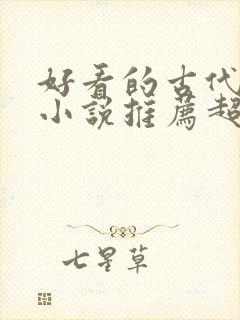 好看的古代
小说推薦超
七星草